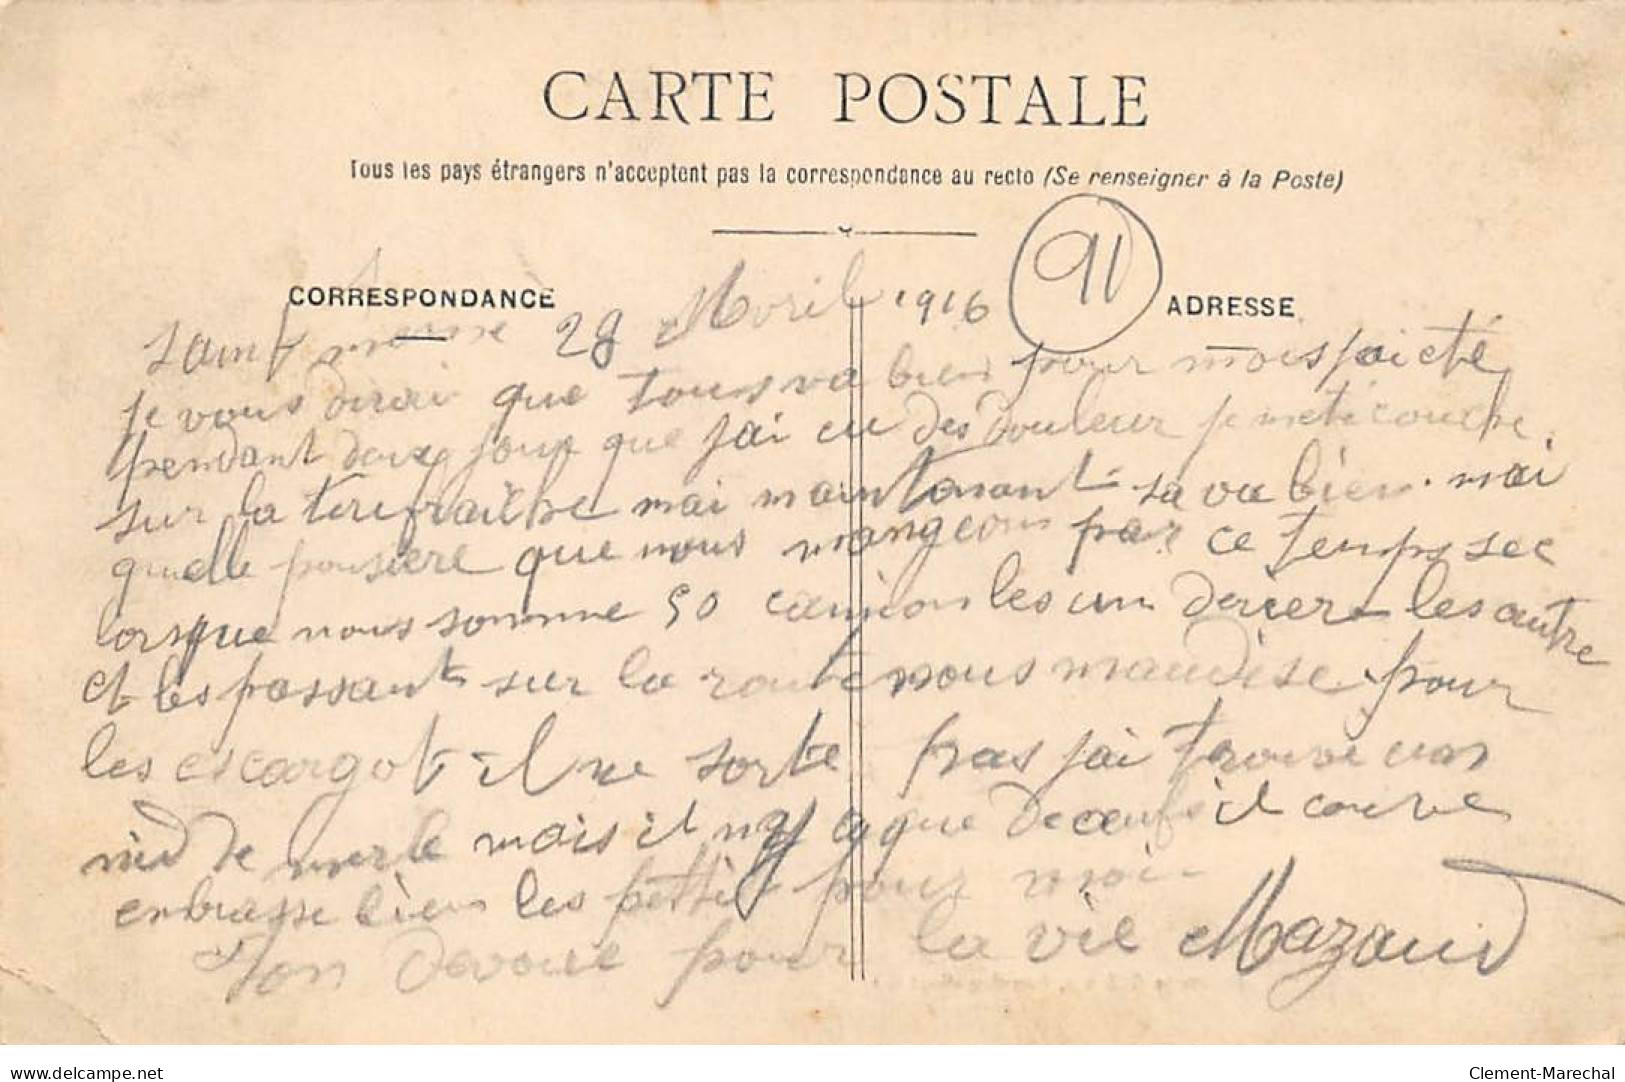 CARTE POSTALE
Tous les pays étrangers n'acceptent pas la correspondance au recto (Se renseigner à la Poste)
91
CORRESPONDANCE
ADRESSE
28 Avril 1916
je vous dirai que tous va bien pour mois jai eté
pendant deux jour que jai eu des douleur je meté couche
sur la tere fraiche mai maintenant sa va bien. mai
quelle pousiere que nous mangeons par ce temps sec
lorsque nous somme 50 camions les un derier les autre
et les passant sur la route nous maudise pour
les escargot il ne sorte pas jai trouve un
nid de merle mais il ny a que de oeufs il couve
enbrasse bien les petti pour moi
Ton devoue pour la vie Mazaud
delcampe.net
Clement-Marechal